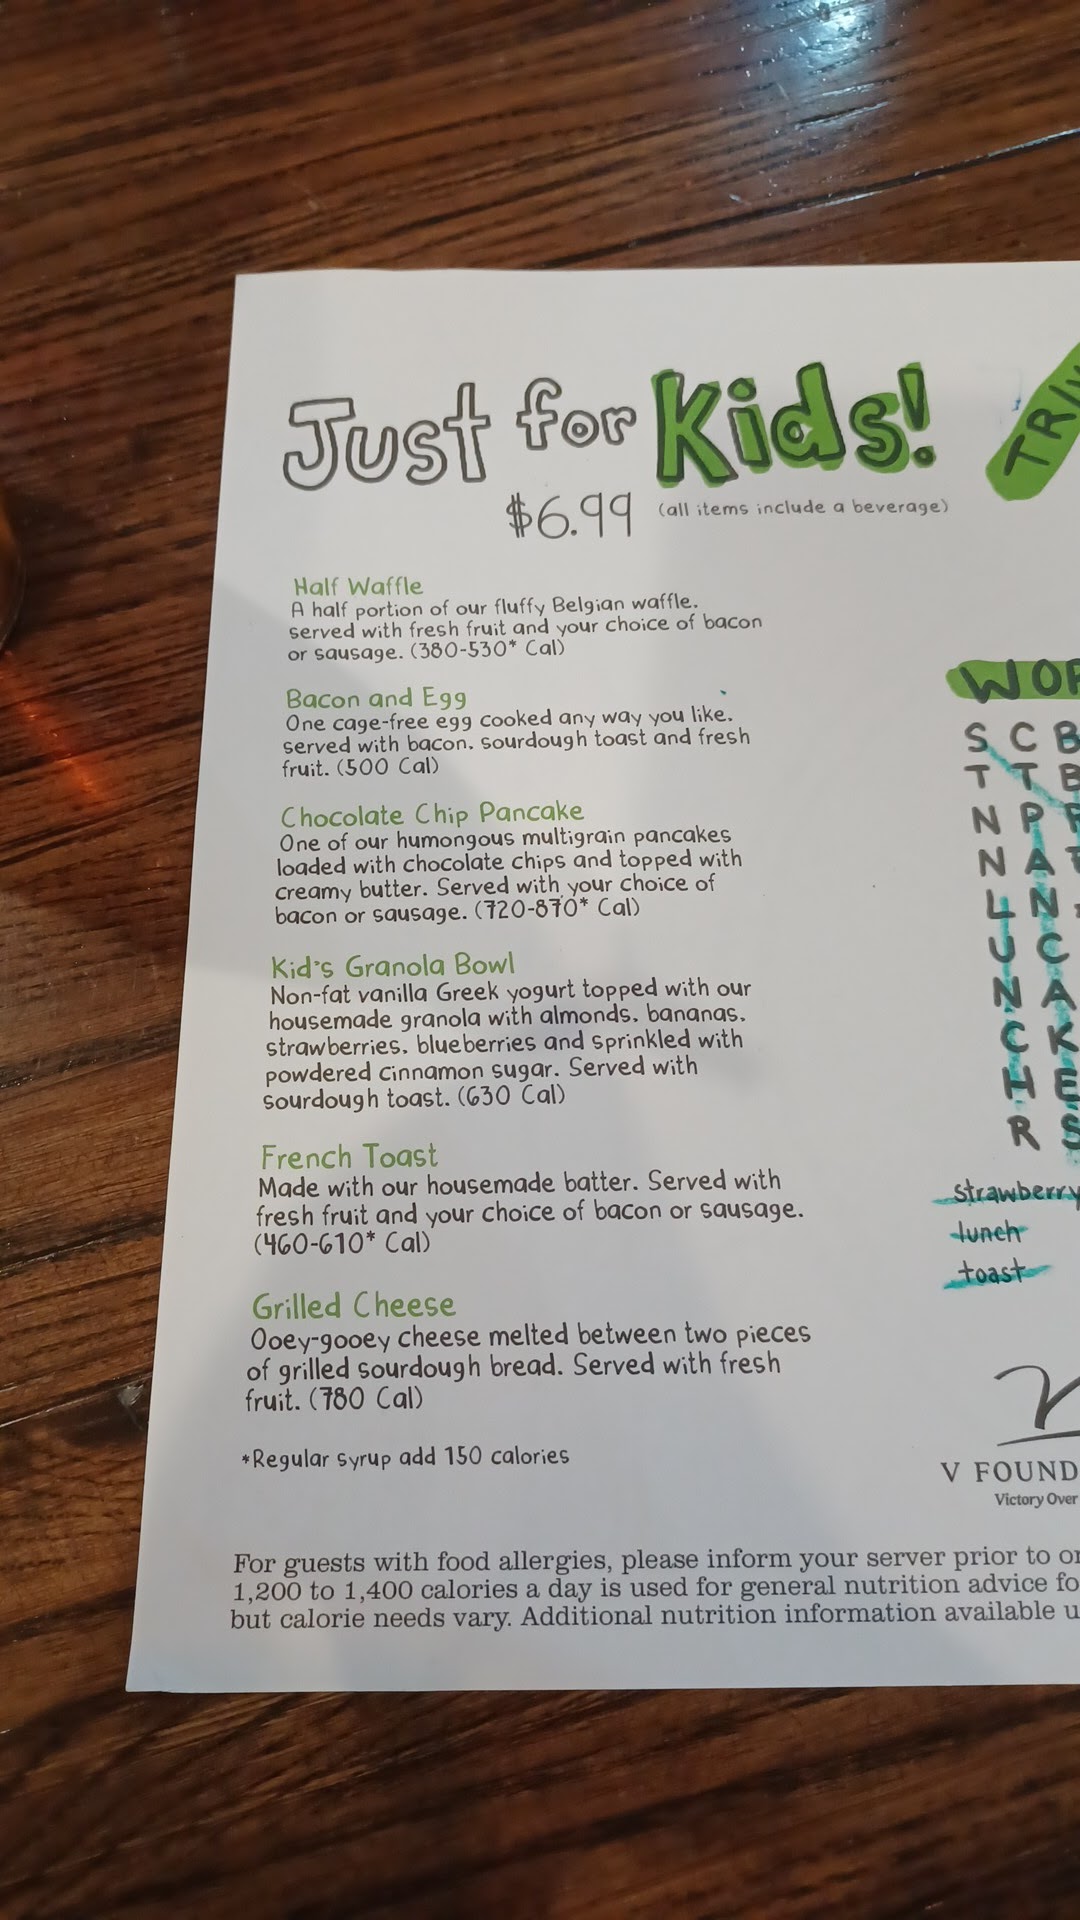 Just for Kids!
$6.99 (all items include a beverage)
Half Waffle
A half portion of our fluffy Belgian waffle,
served with fresh fruit and your choice of bacon
or sausage. (380-530* Cal)
Bacon and Egg
One cage-free egg cooked any way you like,
served with bacon, sourdough toast and fresh
fruit. (500 Cal)
Chocolate Chip Pancake
One of our humongous multigrain pancakes
loaded with chocolate chips and topped with
creamy butter. Served with your choice of
bacon or sausage. (720-870* Cal)
Kid's Granola Bowl
Non-fat vanilla Greek yogurt topped with our
housemade granola with almonds, bananas,
strawberries, blueberries and sprinkled with
powdered cinnamon sugar. Served with
sourdough toast. (630 Cal)
French Toast
Made with our housemade batter. Served with
fresh fruit and your choice of bacon or sausage.
(460-610* Cal)
Grilled Cheese
Ooey-gooey cheese melted between two pieces
of grilled sourdough bread. Served with fresh
fruit. (780 Cal)
*Regular syrup add 150 calories
S C B
T T B
N P
N A
L N
U C
N A
C K
H E
R S
strawberry
lunch
toast
V FOUND
Victory Over
For guests with food allergies, please inform your server prior to
1,200 to 1,400 calories a day is used for general nutrition advice
but calorie needs vary. Additional nutrition information available